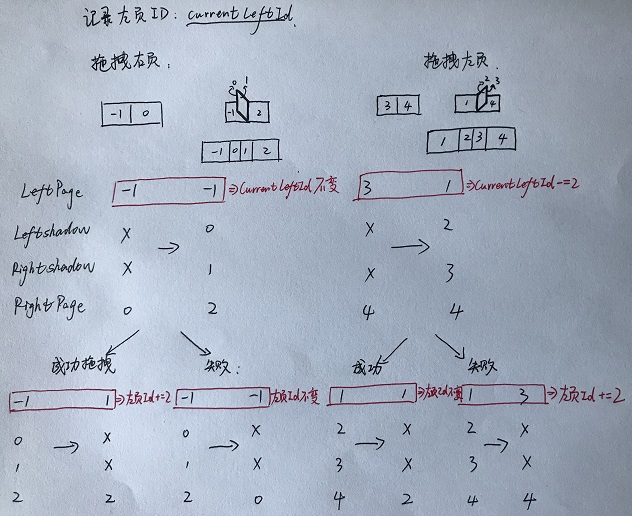 记录左页ID: currentLeftId.
拖拽右页:
拖拽左页:
0 1
-1 2
-1 0
-1 0 1 2
2 3
1 4
3 4
1 2 3 4
LeftPage -1 -1 ⇒ CurrentLeftId 不变 3 1 ⇒ CurrentLeftId -= 2
Leftshadow X → 0 X → 2
Rightshadow X 1 X 3
RightPage 0 2 4 4
成功拖拽 失败: 成功 失败
-1 1 ⇒ 左页Id += 2 -1 -1 左页Id不变 1 1 ⇒ 左页Id不变 1 3 ⇒ 左页Id += 2
0 → X 0 → X 2 → X 2 → X
1 X 1 X 3 X 3 X
2 2 2 0 4 2 4 4